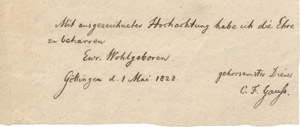 Mit ausgezeichneter Hochachtung habe ich die Ehre
zu beharren
Ewr. Wohlgeboren
Göttingen d. 1 Mai 1828.
gehorsamster Diener
C. F. Gauß.